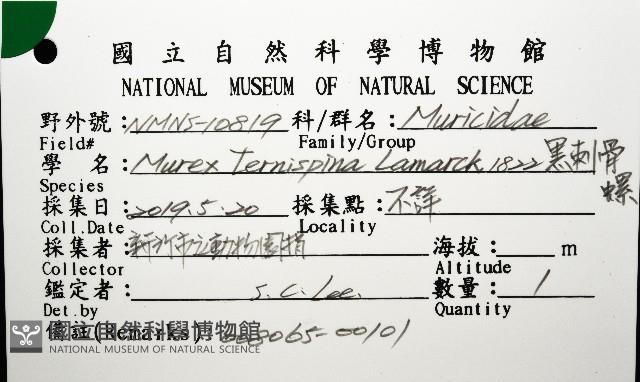 國立自然科學博物館
NATIONAL MUSEUM OF NATURAL SCIENCE
野外號:NMNS-10819 科/群名:Muricidae
Field# Family/Group
學 名:Murex Ternispina Lamarck, 1822 黑刺骨螺
Species
採集日:2019.5.20 採集點:不詳
Coll.Date Locality
採集者:新竹市立動物園捐 海拔: m
Collector Altitude
鑑定者: S.C.Lee. 數量: 1
Det.by Quantity
備註(Remarks) 008065-00101
國立自然科學博物館
NATIONAL MUSEUM OF NATURAL SCIENCE